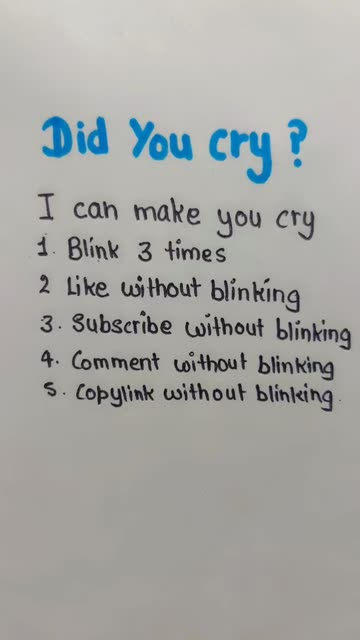 Did You cry ?
I can make you cry
1. Blink 3 times
2 Like without blinking
3. Subscribe without blinking
4. Comment without blinking
5. Copylink without blinking.